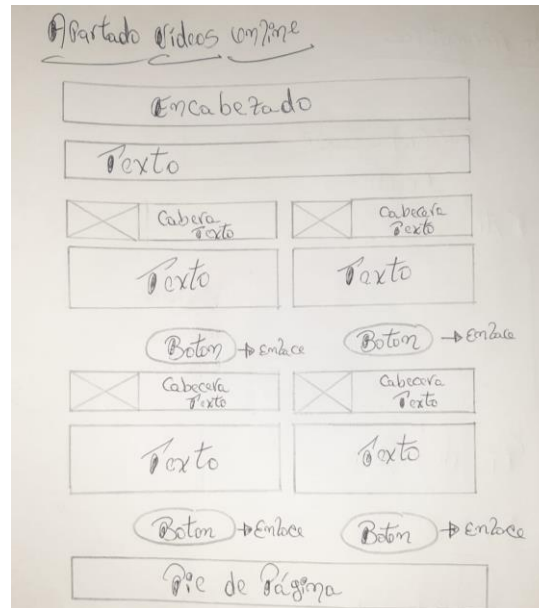 Apartado Vídeos online
Encabezado
Texto
Cabecera Texto
Cabecera Texto
Texto
Texto
Boton → Enlace
Boton → Enlace
Cabecera Texto
Cabecera Texto
Texto
Texto
Boton → Enlace
Boton → Enlace
Pie de Página